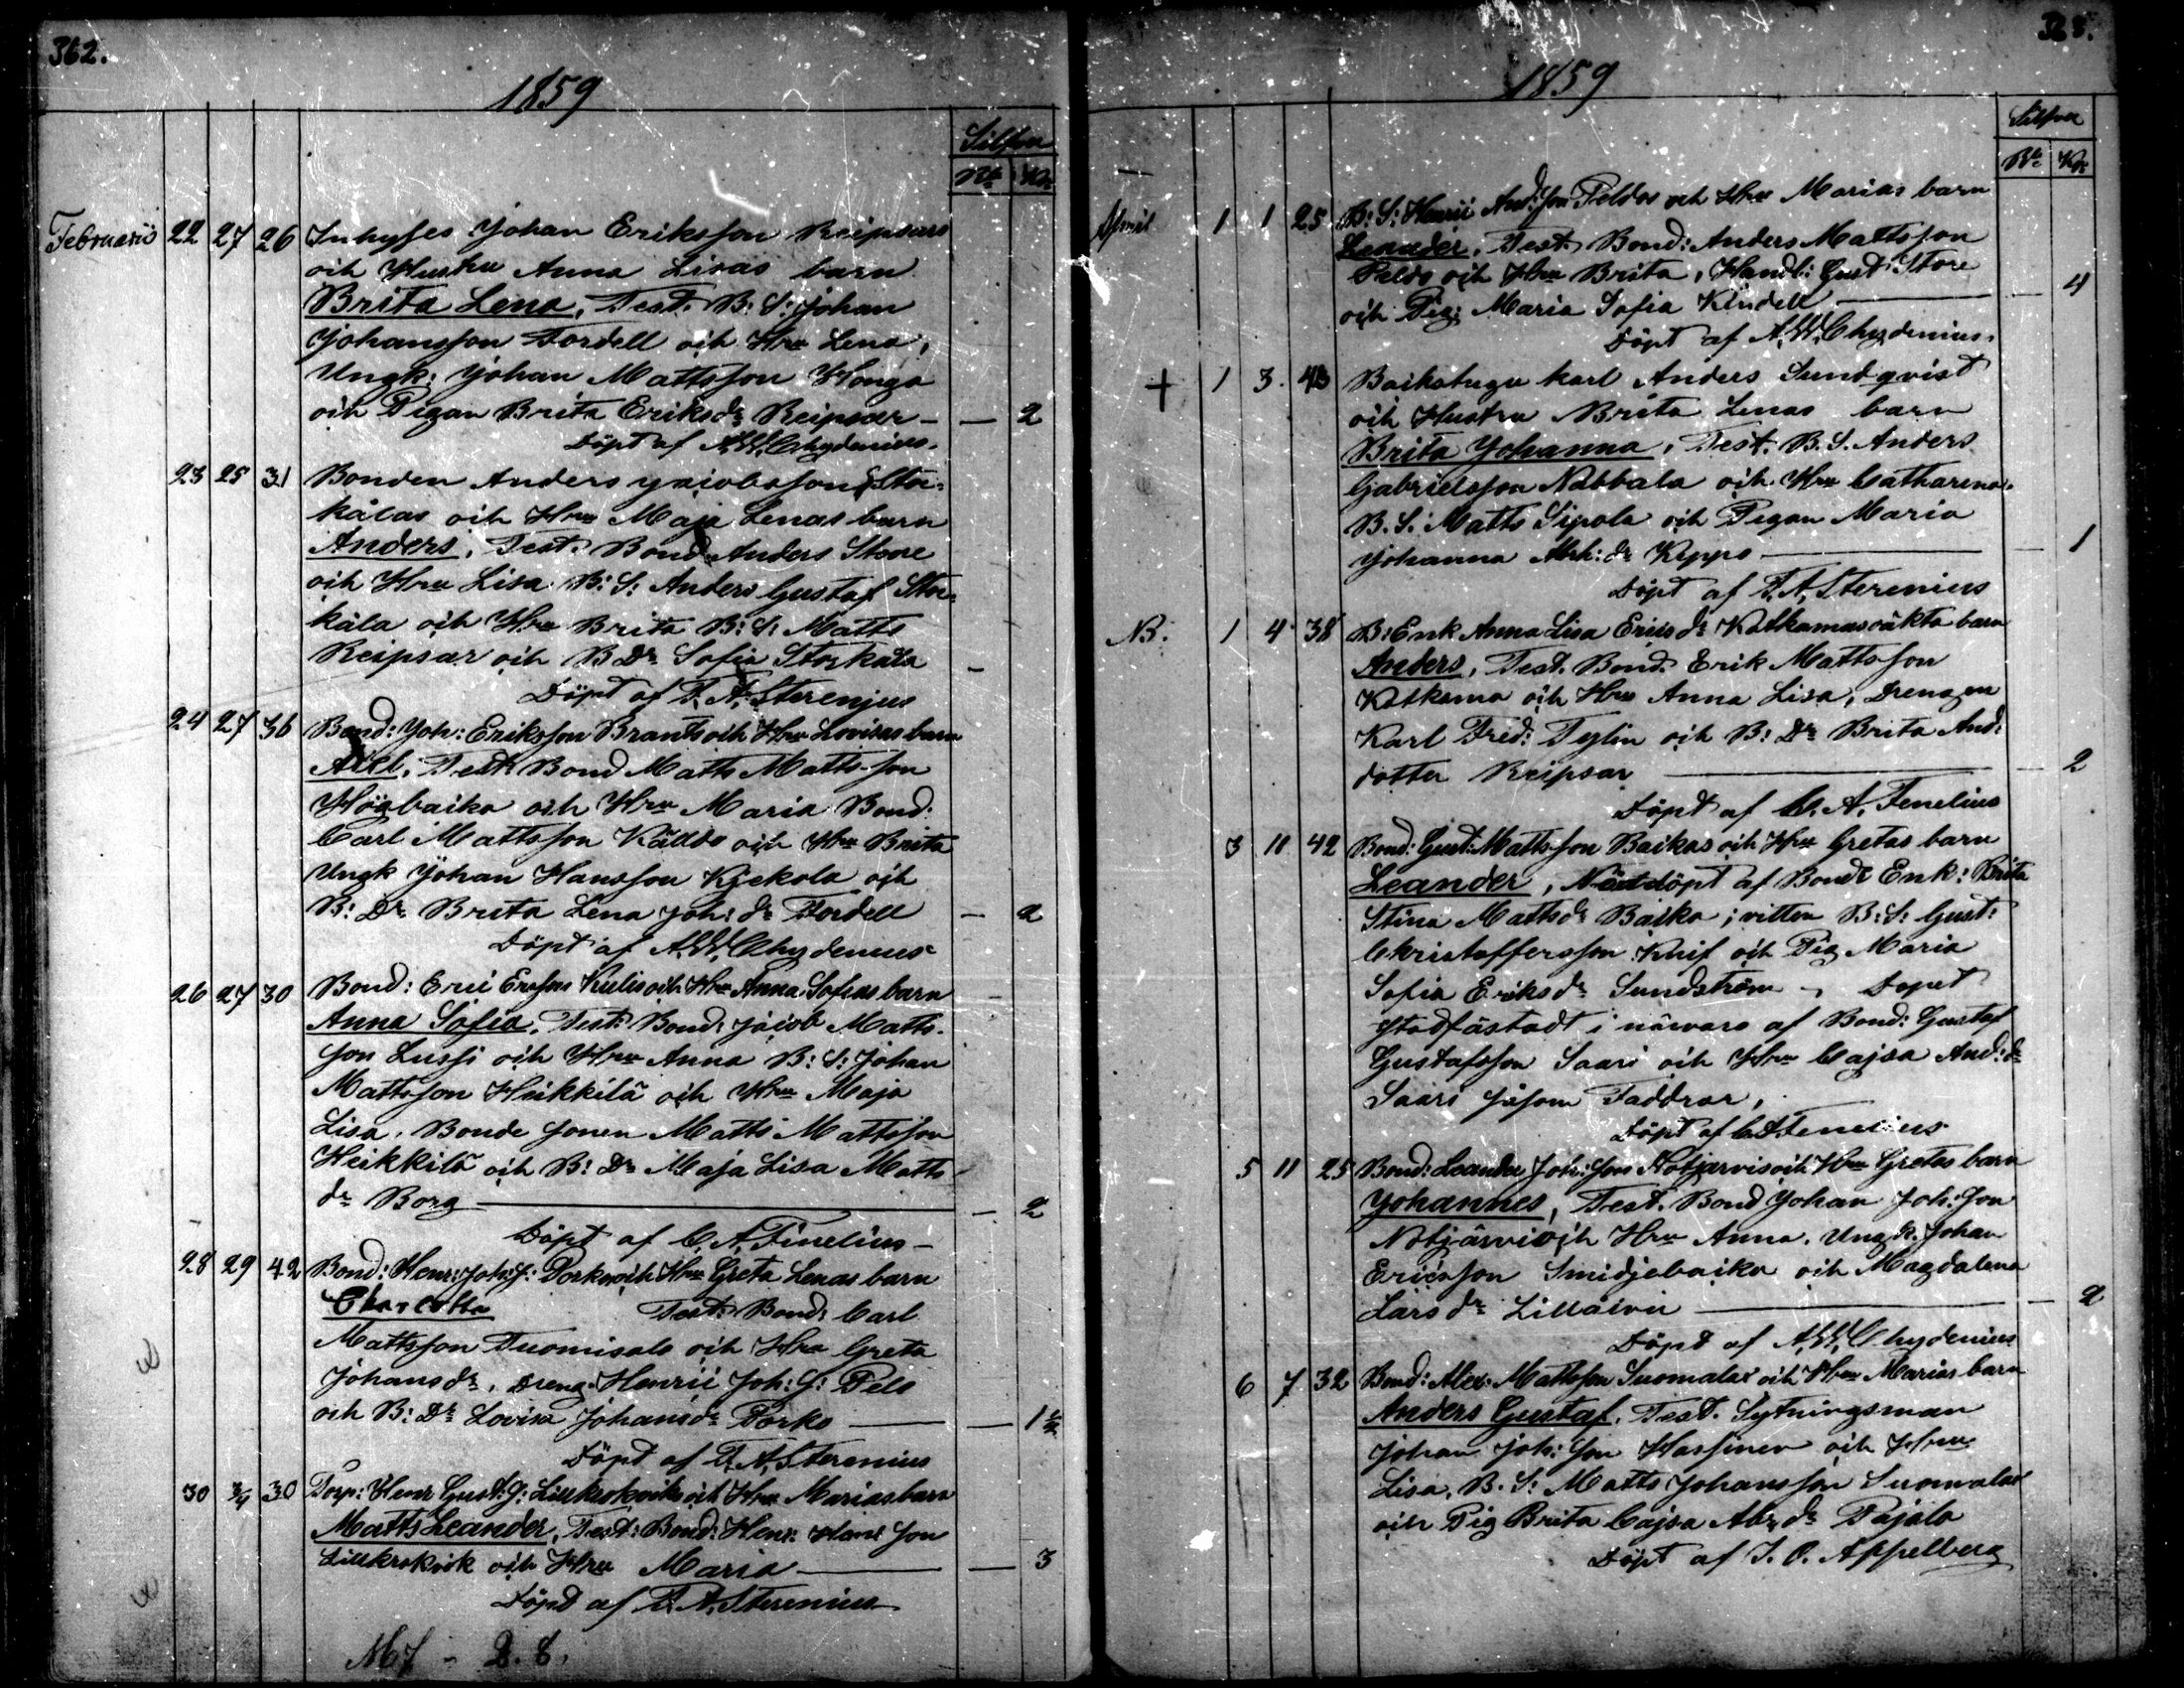 362.
1859
Silfver
Rb. Kp.
Februarii 22 27 26 Inhyses Johan Eriksson Reipsars
och Hustru Anna Lisas barn
Brita Lena, Test. B: S: Johan
Johansson Fordell och Hru Lena,
Ungk: Johan Mattsson Honga
och Pigan Brita Eriksdr Reipsar — — 2
Döpt af A.W. Chydenius.
23 25 31 Bonden Anders Jacobsson Stor-
kålas och Hru Maja Lenas barn
Anders, Test. Bond Anders Stoore
och Hru Lisa B: S: Anders Gustaf Stor-
kåla och Hru Brita B: S: Matts
Reipsar och B Dr Sofia Storkåla —
Döpt af F. A. Sterenius
24 27 36 Bond: Joh: Eriksson Brants och Hru Lovisas barn
Axel, Test. Bond Matts Mattsson
Högbaika och Hru Maria Bond:
Carl Mattsson Källdo och Hru Brita
Ungk Johan Hansson Kjekola och
B: Dr Brita Lena Joh: dr Fordell — 2
Döpt af A.W. Chydenius
26 27 30 Bond: Eric Erssons och Hru Anna Sofias barn —
Anna Sofia, Test. Bond: Jacob Matts-
son Lussi och Hru Anna B: S: Johan
Mattsson Heikkilä och Hru Maja
Lisa. Bonde sonen Matts Mattsson
Heikkilä och B: Dr Maja Lisa Matts
dr Borg — — 2
Döpt af C. A. Fenelius —
28 29 42 Bond: Henr: Joh: S: Dorkos och Hru Greta Lenas barn
Charlotta Test. Bond: Carl
Mattsson Tuomisalo och Hru Greta
Johansdr, Dreng. Henric Joh: S: Pelo
och B: Dr Lovisa Johansdr Dorko — — 1 1/2
Döpt af F. A. Sterenius
30 3/4 30 Torp: Henr Gust: S: Lillkrokviks och Hru Marias barn
Matts Leander, Test: Bond: Henr: Hansson
Lillkrokvik och Hru Maria — — 3
Döpt af F. A. Sterenius
363.
1859
Silfver
Rb. Kp.
April 1 1 25 B: S: Henric And: Son Peldos och Hru Marias barn
Leander, Test. Bond: Anders Mattsson
Peldo och Hru Brita, Handl: Gust: Store
och Pig: Maria Sofia Kindell — — 4
Döpt af A.W. Chydenius.
+ 1 3. 43 Baikstugu karl Anders Sundqvist
och Hustru Brita Lenas barn
Brita Johanna, Test. B. S. Anders
Gabrielsson Nabbala och Hru Catharina.
B. S. Matts Sipola och Pigan Maria
Johanna Abrh: dr Keppo — — 1
Döpt af F. A. Sterenius
NB. 1 4 38 B: Enk Anna Lisa Ericsdr Kotkamas oäkta barn
Anders, Test. Bond: Erik Mattsson
Kotkama och Hru Anna Lisa, Drengen
Karl Fred: Teflin och B: Dr Brita And:
dotter Reipsar — — 2
Döpt af C. A. Fenelius
3 11 42 Bond: Gust: Mattsson Baikas och Hru Gretas barn
Leander, Nöddöpt af Bonde Enk: Brita
Stina Mattsdr Baika; vitten B: S: Gust:
Christoffersson Knif och Pig Maria
Sofia Eriksdr Sundström —, Dopet
stadfästadt i närvaro af Bond: Gustaf
Gustafsson Saari och Hru Cajsa And: dr
Saari såsom Faddrar,
Döpt af C. A. Fenelius
5 11 25 Bond: Leander Joh: Sons Nåtjärvis och Hru Gretas barn
Johannes, Test. Bond Johan Joh: Son
Nåtjärvi och Hru Anna. Ungk. Johan
Ericsson Smidjebaika och Magdalena
Larsdr — — 2
Döpt af A.W. Chydenius
6 7 32 Bond: Alex. Mattsson Suomalax och Hru Marias barn
Anders Gustaf, Test. Sytningsman
Johan Joh: Son Hassinen och Hru
Lisa, B. S: Matts Johansson Suomalax
och Pig Brita Cajsa Abr. dr Pajala
Döpt af J. O. Appelberg